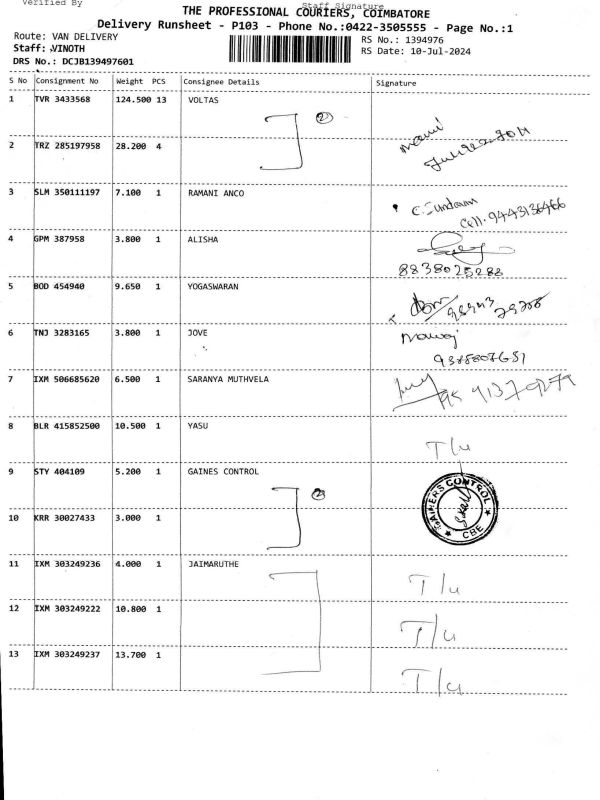 Verified By
Staff Signature
THE PROFESSIONAL COURIERS, COIMBATORE
Delivery Runsheet - P103 - Phone No.:0422-3505555 - Page No.:1
Route: VAN DELIVERY
Staff: VINOTH
DRS No.: DCJB139497601
RS No.: 1394976
RS Date: 10-Jul-2024
S No Consignment No Weight PCS Consignee Details Signature
1 TVR 3433568 124.500 13 VOLTAS
2
2 TRZ 285197958 28.200 4
3 SLM 350111197 7.100 1 RAMANI ANCO
C. Sundaram
Cell. 9443136466
4 GPM 387958 3.800 1 ALISHA
8838025288
5 BOD 454940 9.650 1 YOGASWARAN
6 TNJ 3283165 3.800 1 JOVE
Manoj
9388807681
7 IXM 506685620 6.500 1 SARANYA MUTHVELA
8 BLR 415852500 10.500 1 YASU
T/u
9 STY 404109 5.200 1 GAINES CONTROL
2
CONTROL
CBE
10 KRR 30027433 3.000 1
11 IXM 303249236 4.000 1 JAIMARUTHE
T/u
12 IXM 303249222 10.800 1
T/u
13 IXM 303249237 13.700 1
T/u